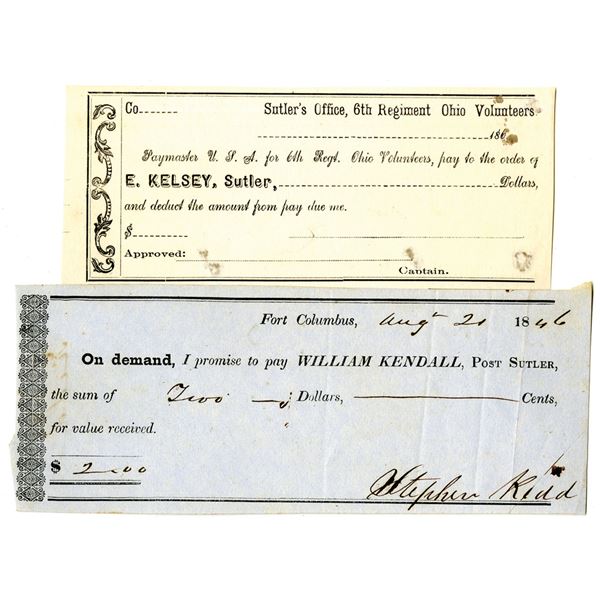 Co Sutler's Office, 6th Regiment Ohio Volunteers
186
Paymaster U. S. A. for 6th Regt. Ohio Volunteers, pay to the order of
E. KELSEY, Sutler, Dollars,
and deduct the amount from pay due me.
$
Approved:
Captain.
Fort Columbus, Augt 21 1846
On demand, I promise to pay WILLIAM KENDALL, POST SUTLER,
the sum of Two Dollars, Cents,
for value received.
$ 2.00
Stephen Kidd